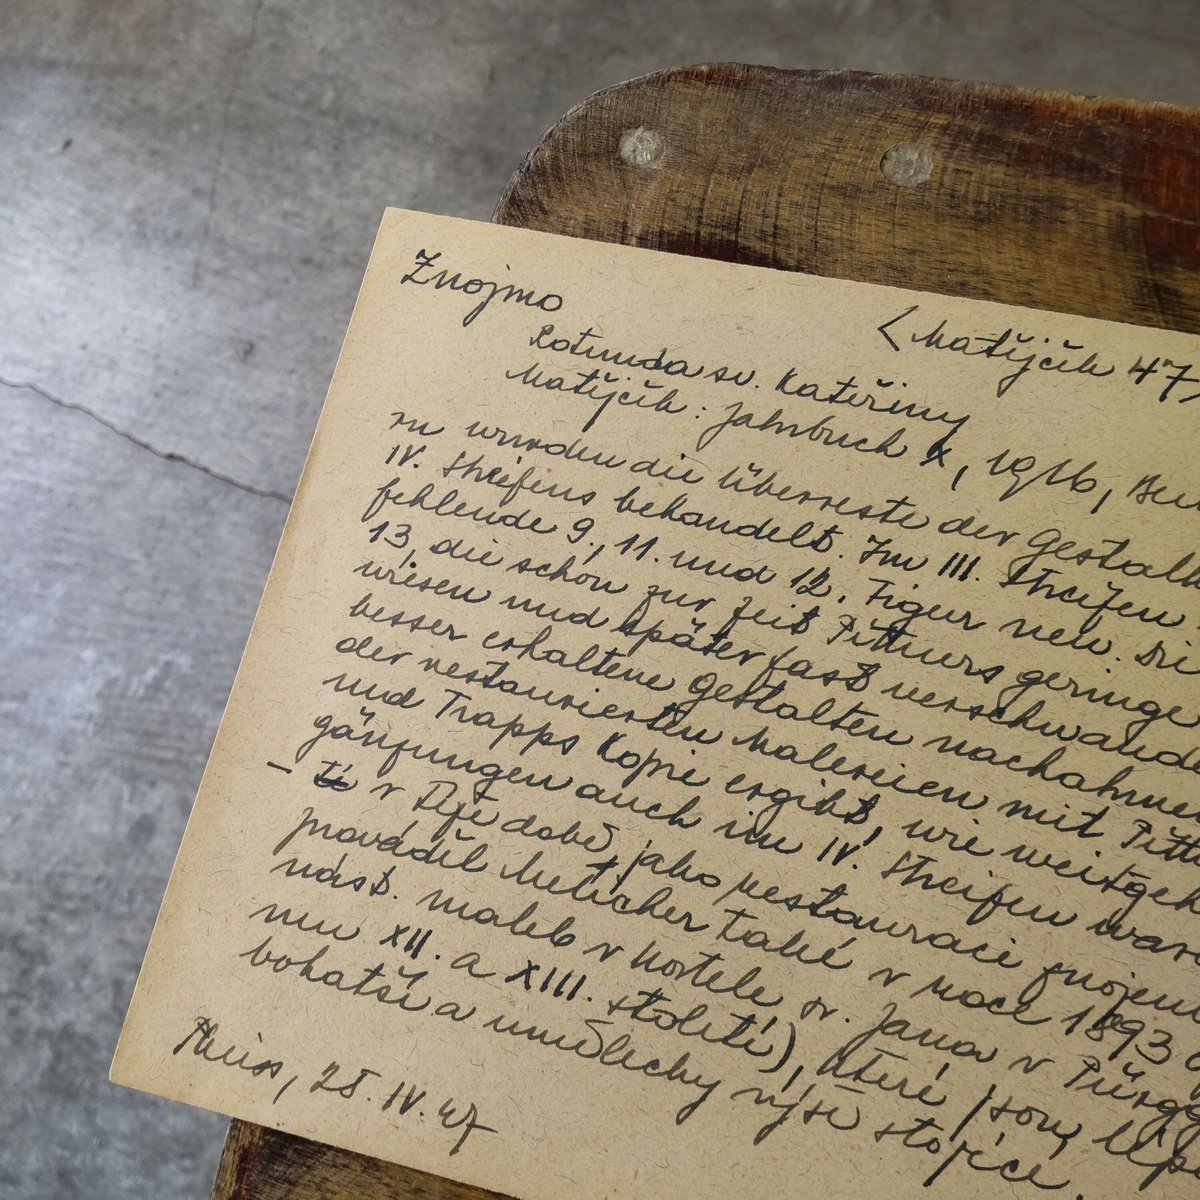 Znojmo
< Matějček 47>
Rotunda sv. Kateřiny
Matějček: Jahrbuch X, 1916,
ru wurden die Überreste der Gestalt
IV. Streifens behandelt. Im III. Streifen
fehlende 9., 11. und 12. Figur neu. Die
13, die schon zur Zeit Pittners geringe
wiesen und später fast verschwande
besser erhaltene Gestalten nachahmen
der restaurierten Malereien mit Pittn
und Trapps Kopie ergibt, wie weitgeh
gänzungen auch im IV. Streifen ware
– v téže době jako restauraci znojem
prováděl Melicher také v roce 1893
nást. maleb v kostele sv. Jana v Pürgg
mu XII. a XIII. století), které jsou lépe
bohatší a umělecky výše stojíce
, 25. IV. 47